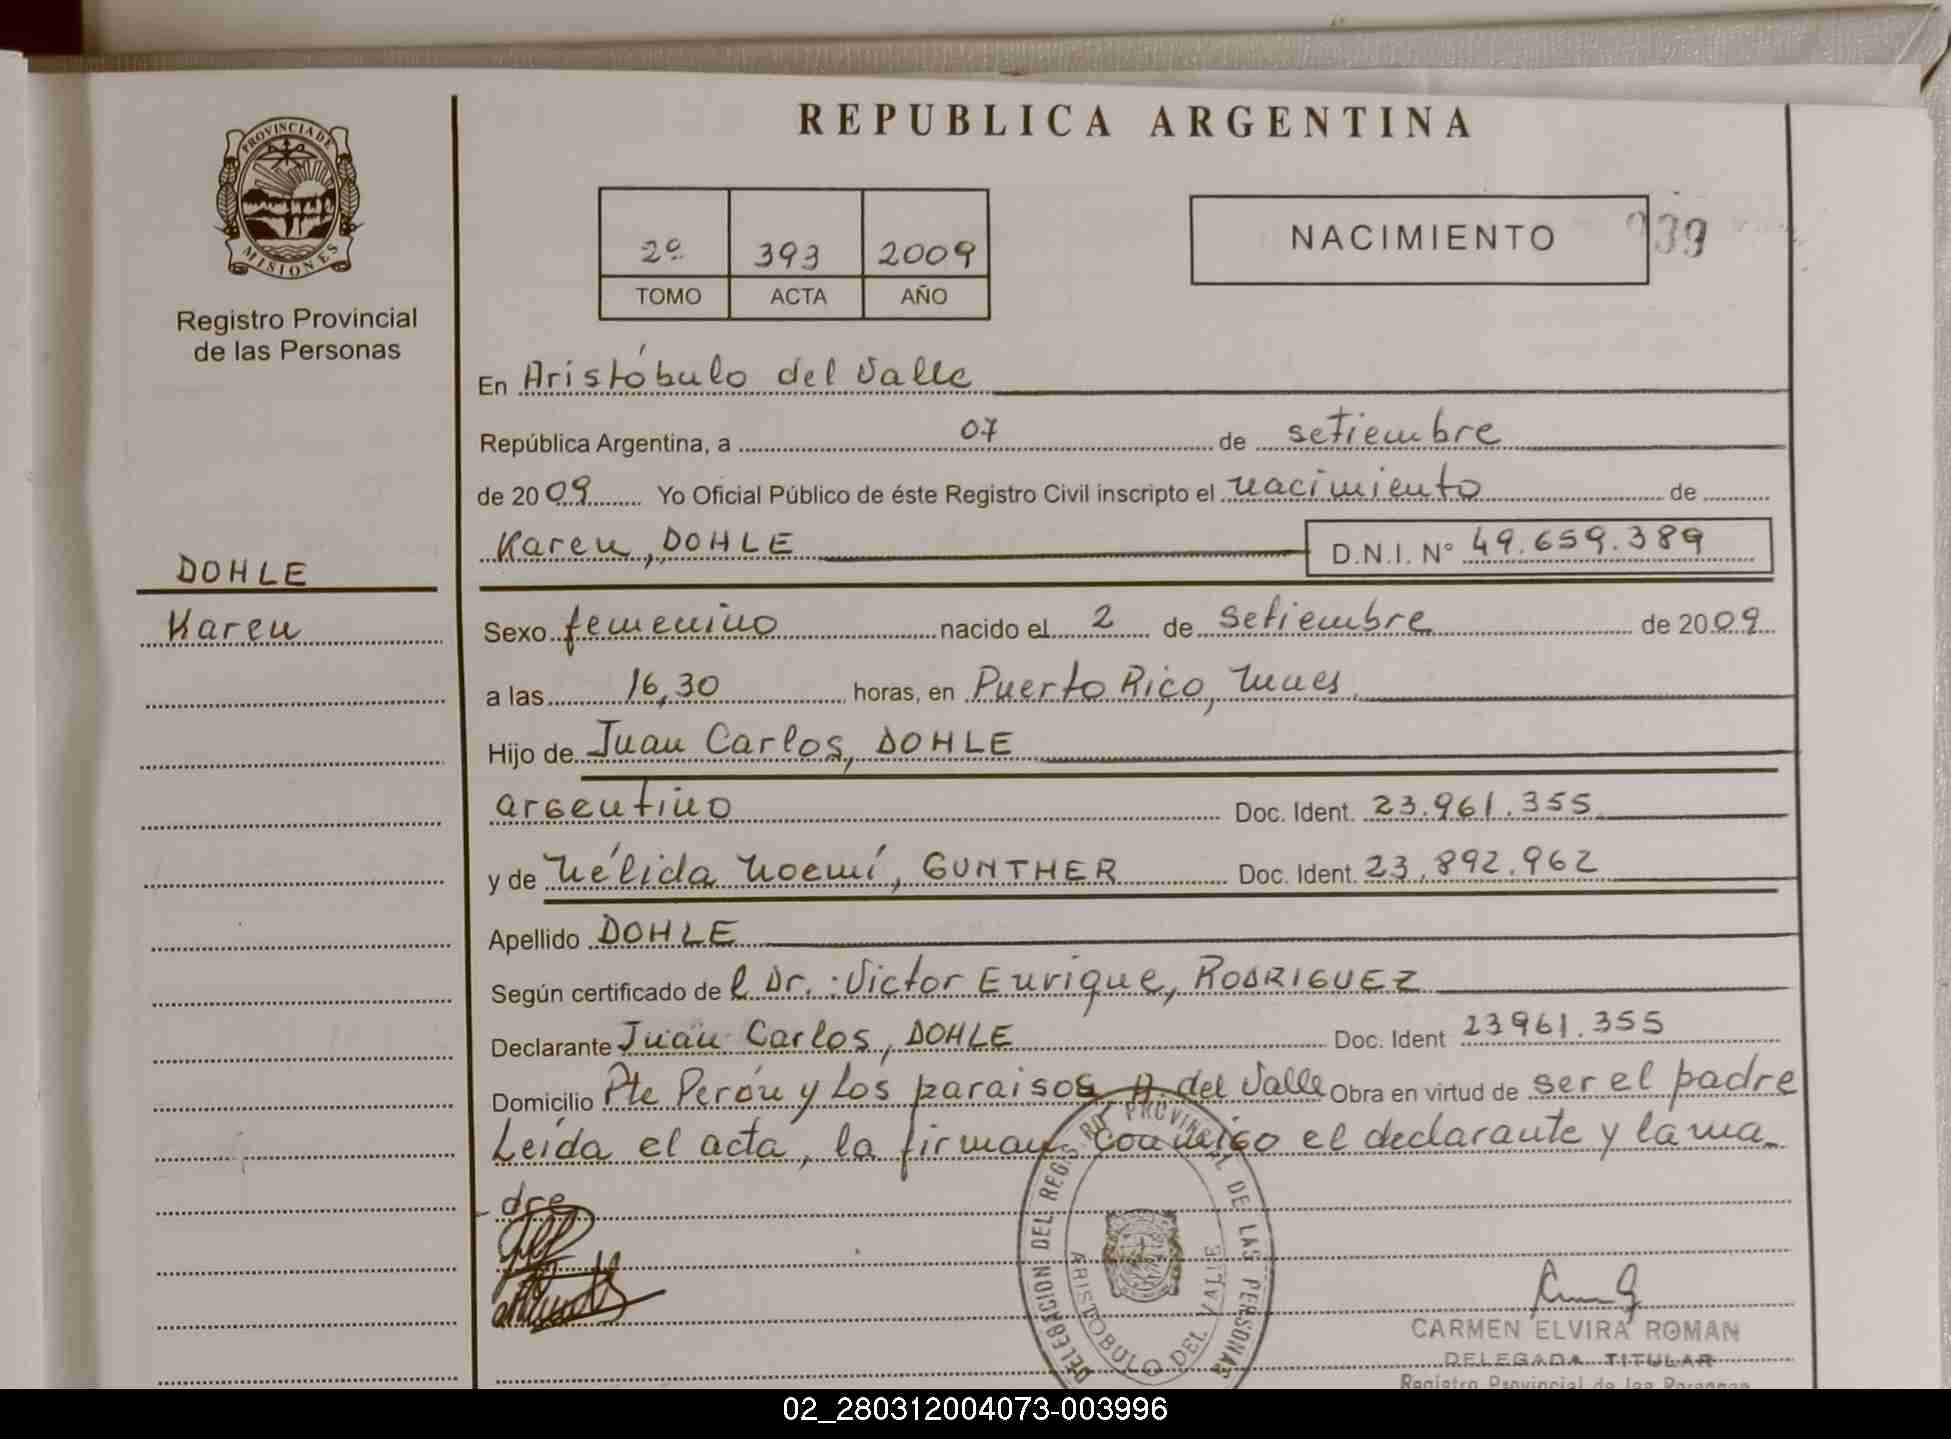 REPUBLICA ARGENTINA
PROVINCIA DE
MISIONES
Registro Provincial
de las Personas
2º 393 2009
TOMO ACTA AÑO
NACIMIENTO 39
En Aristóbulo del Valle
República Argentina, a 07 de setiembre
de 2009 Yo Oficial Público de éste Registro Civil inscripto el nacimiento de
Karen, DOHLE D.N.I. Nº 49.659.389
DOHLE
Karen
Sexo femenino nacido el 2 de setiembre de 2009
a las 16,30 horas, en Puerto Rico, Mnes
Hijo de Juan Carlos, DOHLE
argentino Doc. Ident. 23.961.355
y de Nélida Noemí, GUNTHER Doc. Ident. 23.892.962
Apellido DOHLE
Según certificado de l Dr.: Victor Enrique, RODRIGUEZ
Declarante Juan Carlos, DOHLE Doc. Ident 23961.355
Domicilio Pte Perón y Los paraisos A. del Valle Obra en virtud de ser el padre
Leída el acta, la firman conmigo el declarante y la ma
dre
DELEGACION DEL REGIS PROVINCIAL DE LAS PERSONAS
ARISTOBULO DEL VALLE
CARMEN ELVIRA ROMAN
DELEGADA TITULAR
Registro Provincial de las Personas
02_280312004073-003996